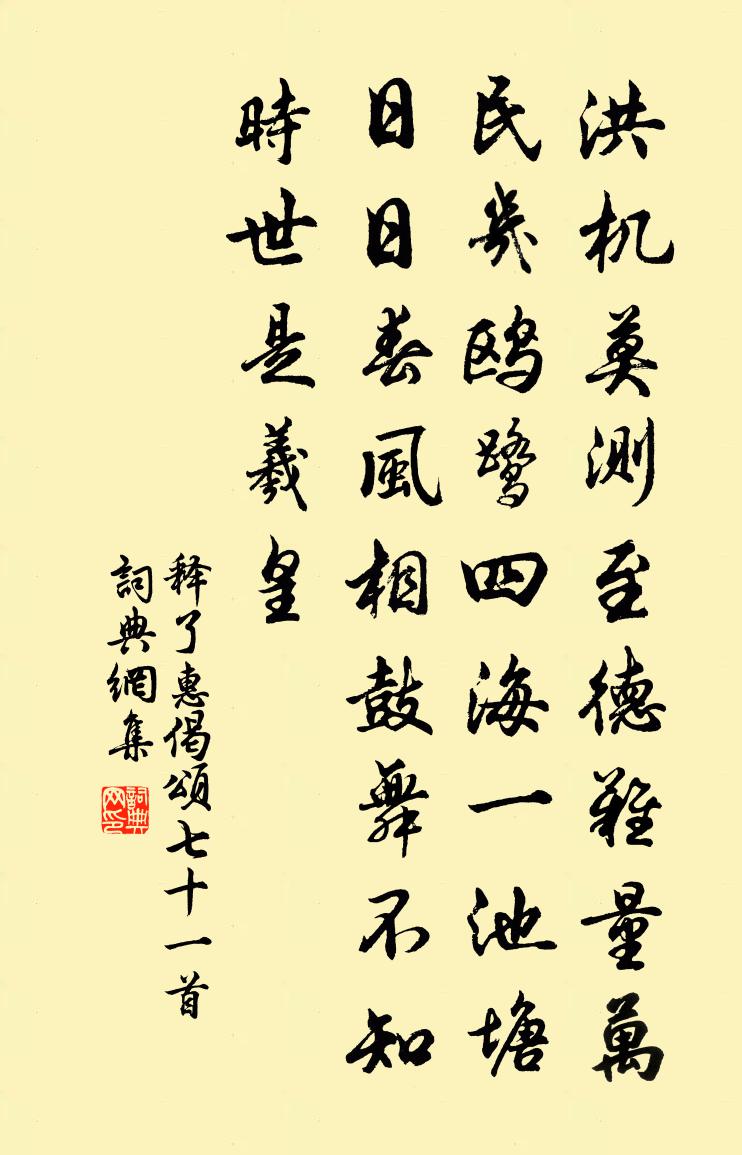 洪机莫测至德難量萬
民几鸥鹭四海一池塘
日日春風相鼓舞不知
時世是羲皇
释了惠偈頌七十一首
詞典網集
詞典网印